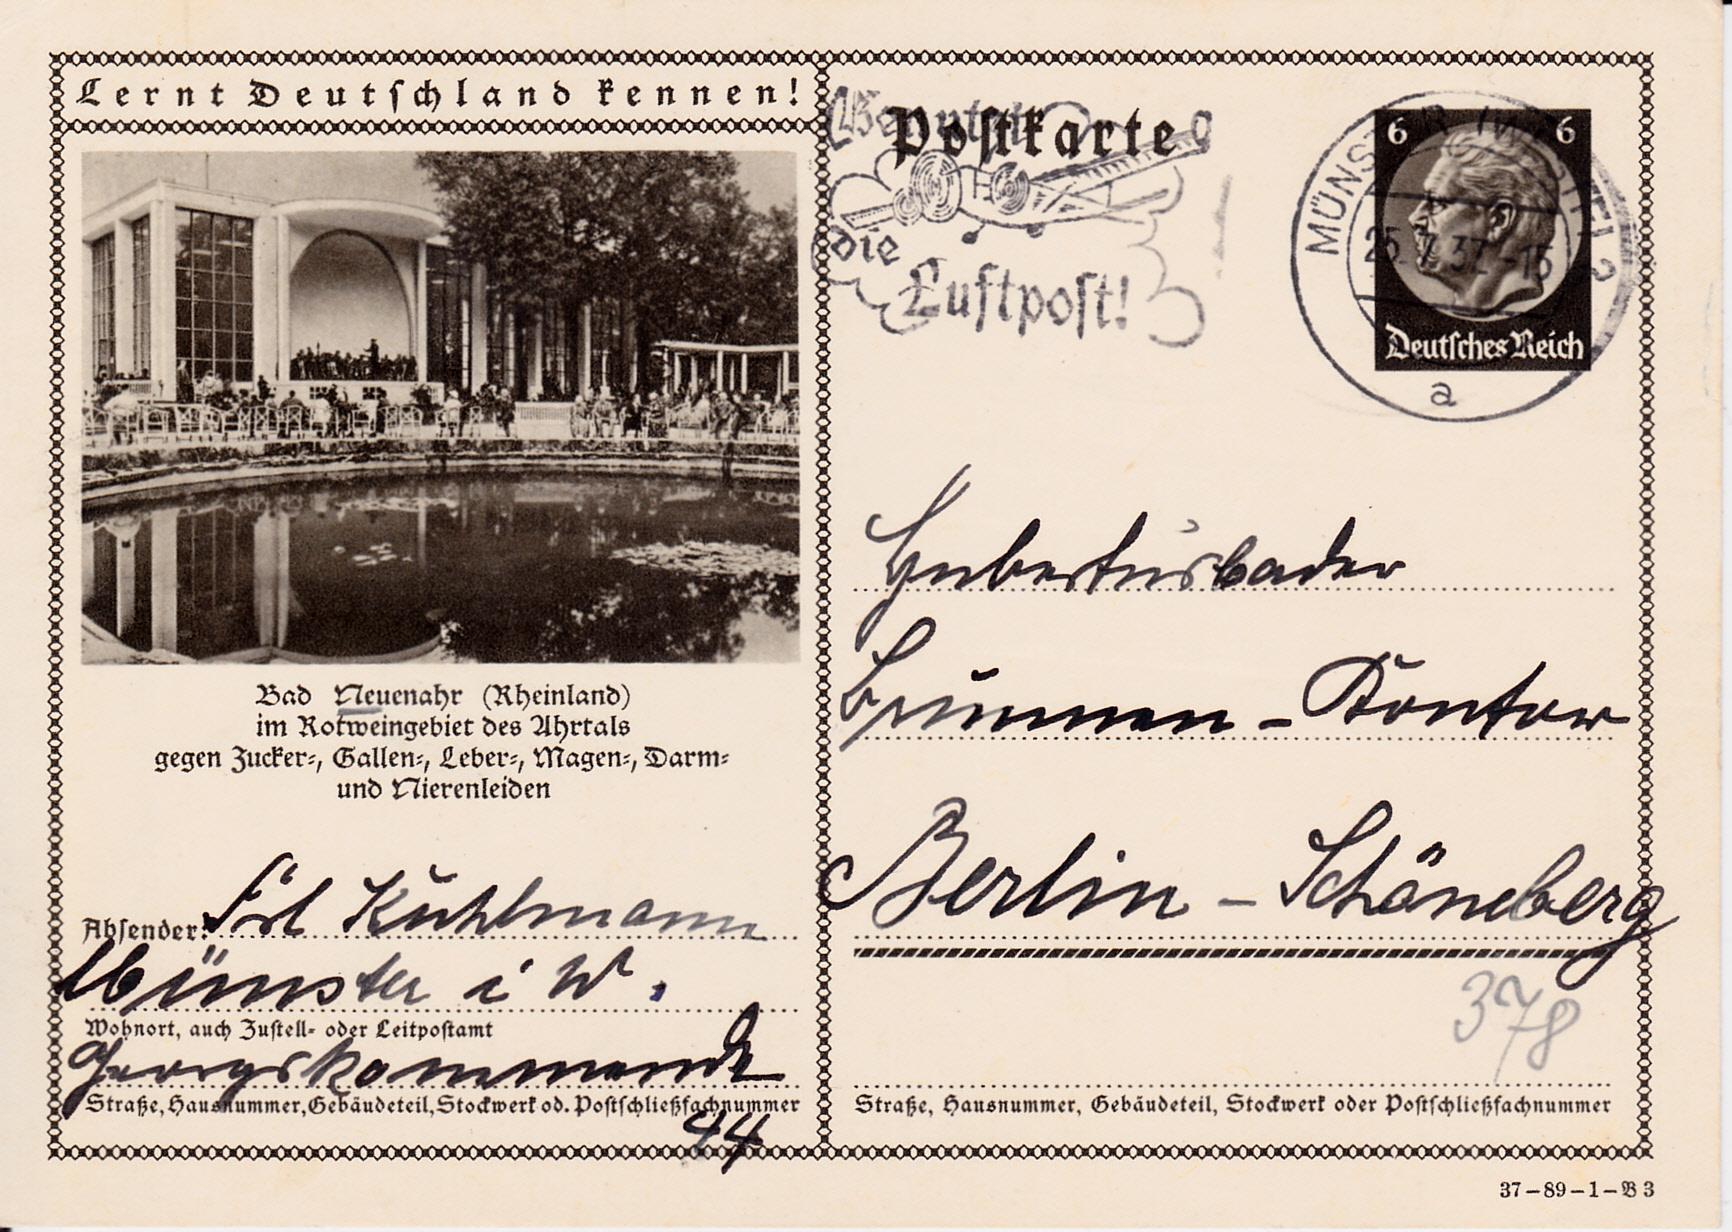 Lernt Deutschland kennen!
Bad Neuenahr (Rheinland)
im Rotweingebiet des Ahrtals
gegen Zucker-, Gallen-, Leber-, Magen-, Darm-
und Nierenleiden
Absender: Frl Kuhlmann
Münster i W.
Wohnort, auch Zustell- oder Leitpostamt
Georgskommende
Straße, Hausnummer, Gebäudeteil, Stockwerk od. Postschließfachnummer
44
Postkarte
Benutzt
die
Luftpost!
6 6
Deutsches Reich
MÜNSTER (WESTF) 2
25.7.37.-15
a
Hubertusbader
Brunnen - Kontor
Berlin - Schöneberg
378
Straße, Hausnummer, Gebäudeteil, Stockwerk oder Postschließfachnummer
37-89-1-B 3